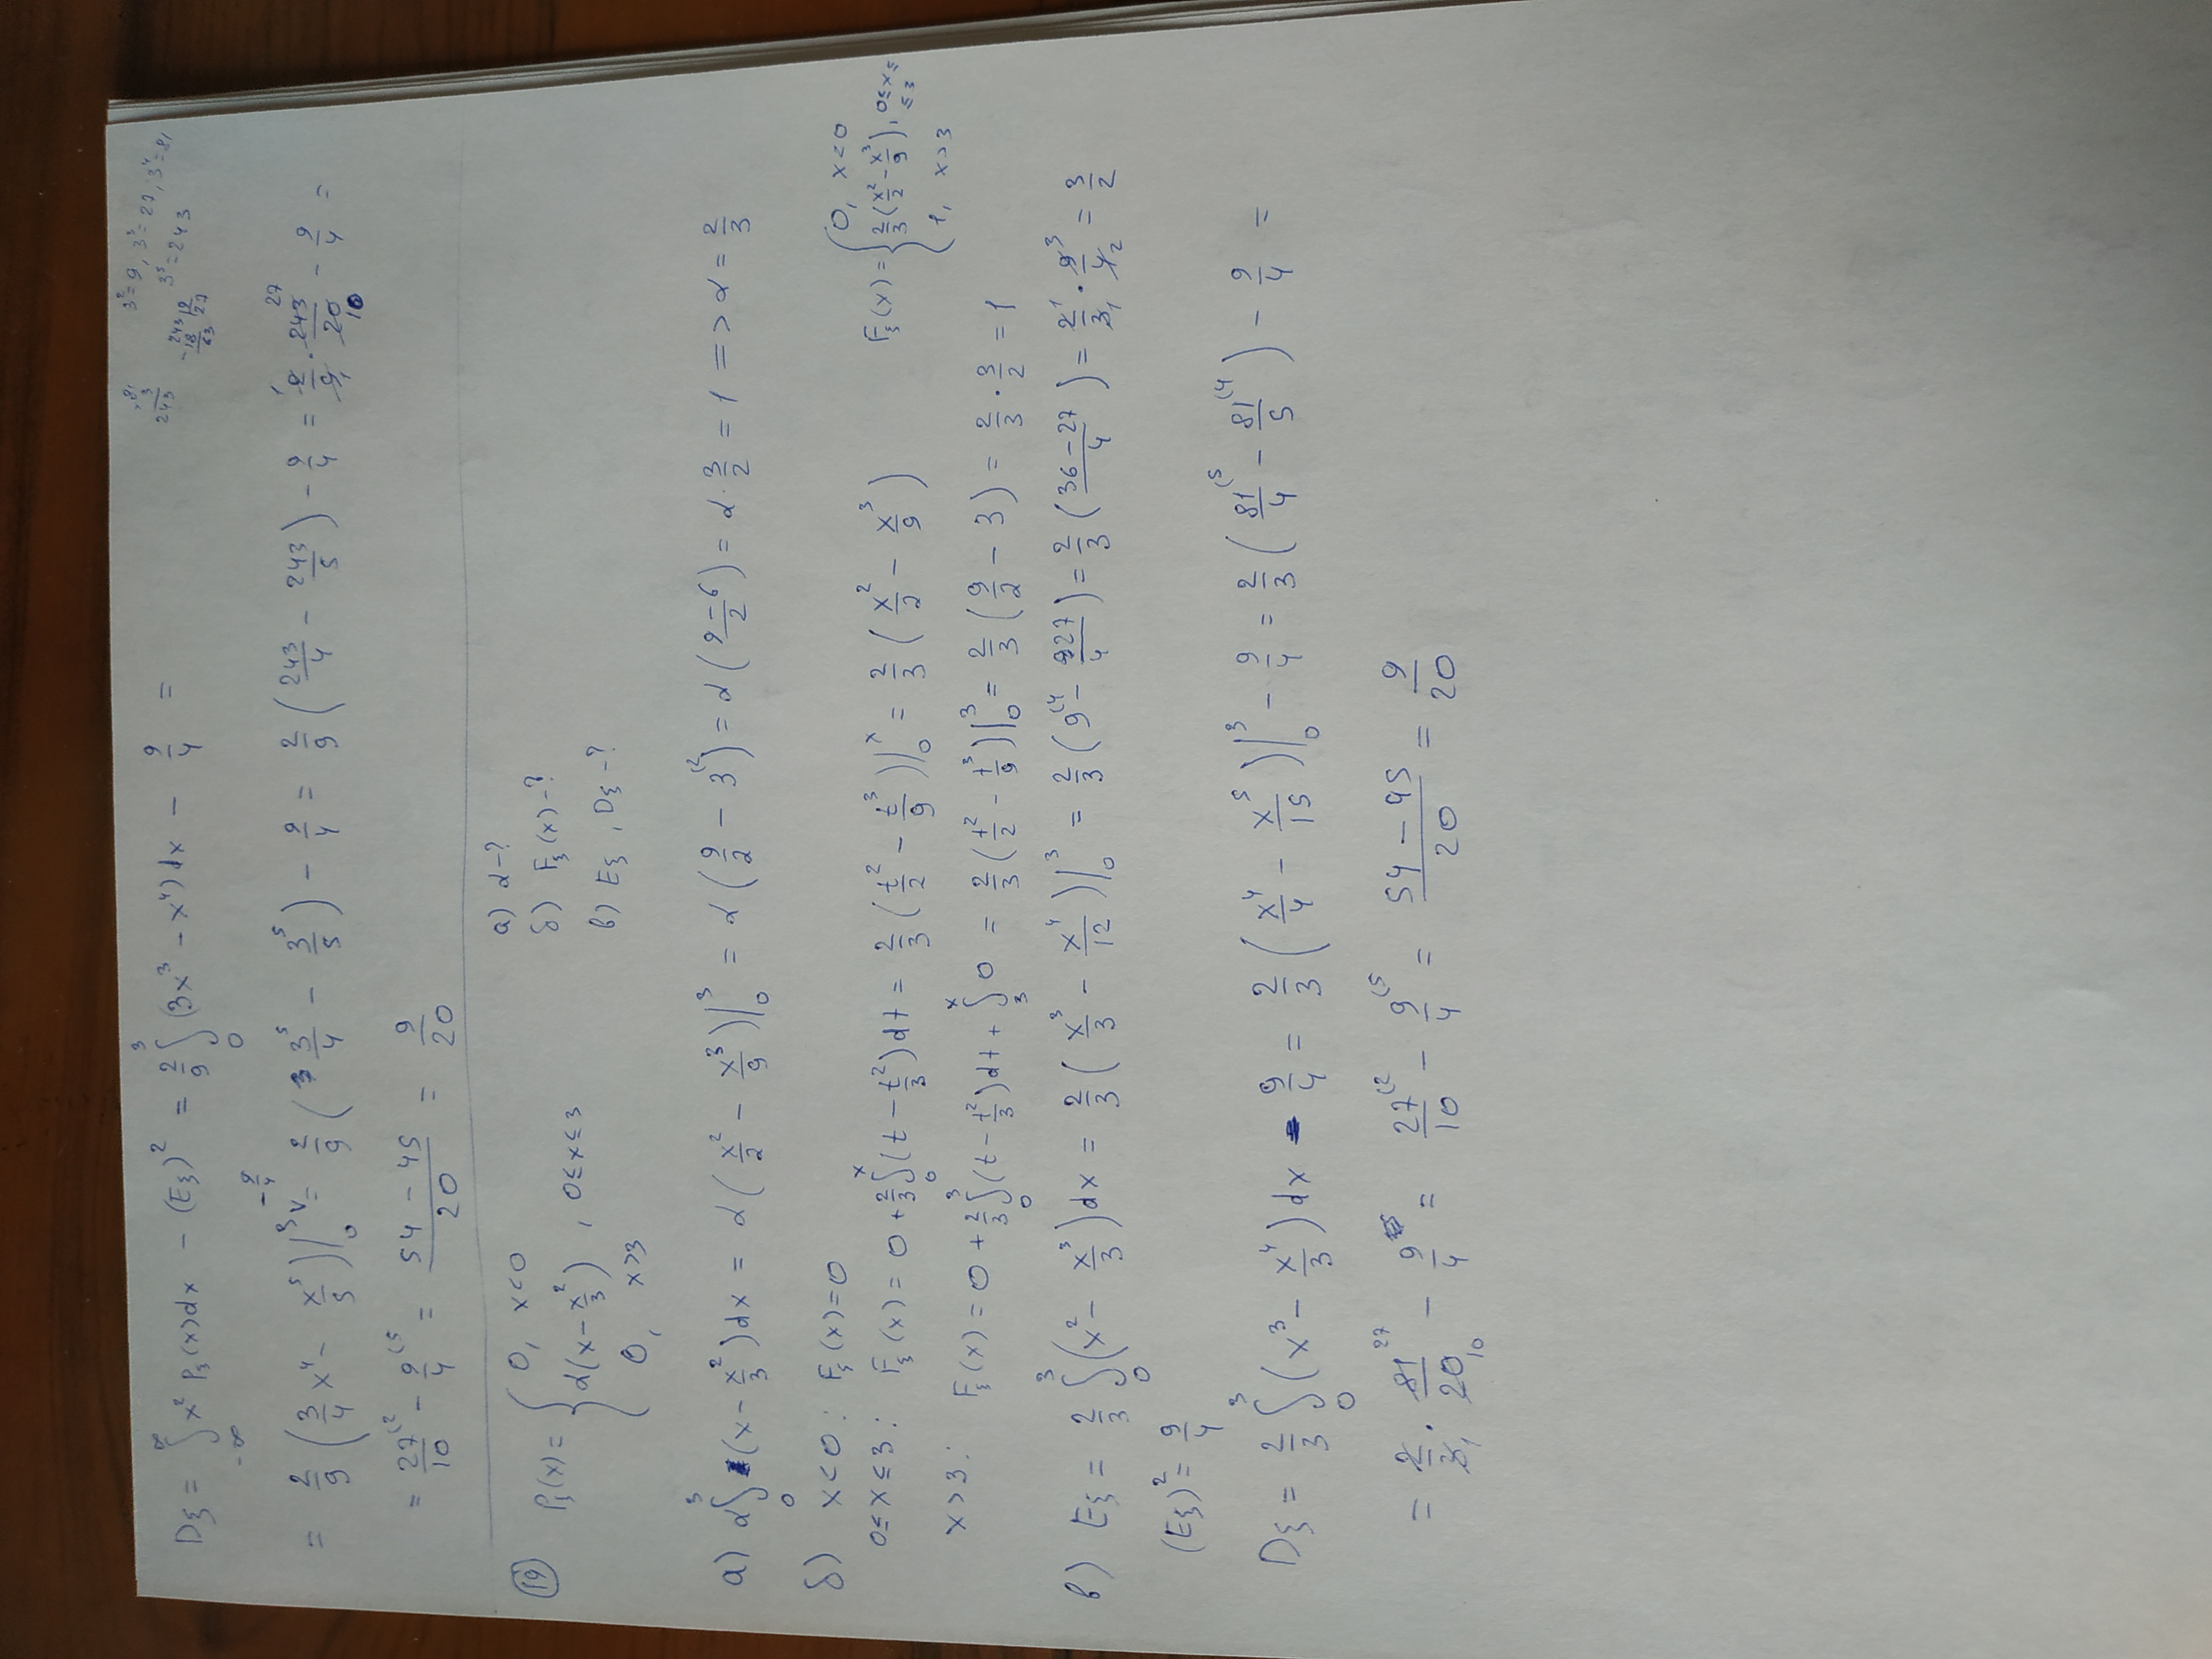 Dξ = ∫_{-∞}^{∞} x² P_ξ(x)dx - (Eξ)² = 2/9 ∫_0^3 (3x³ - x⁴)dx - 9/4 =
3² = 9, 3³ = 27, 3⁴ = 81
3⁵ = 243
81
3
243
243 | 9
18 | 27
63
= 2/9 (3/4 x⁴ - x⁵/5)|_0^3 - 9/4 = 2/9 (3⁵/4 - 3⁵/5) - 9/4 = 2/9 (243/4 - 243/5) - 9/4 = 2/9 · 243/20 - 9/4 =
= 27/10 - 9/4 = (54 - 45)/20 = 9/20
19 P_ξ(x) = { 0, x<0
α(x - x²/3), 0≤x≤3
0, x>3
а) α-?
б) F_ξ(x)-?
в) Eξ, Dξ-?
а) α∫_0^3 (x - x²/3)dx = α(x²/2 - x³/9)|_0^3 = α(9/2 - 3) = α((9-6)/2) = α·3/2 = 1 => α = 2/3
б) x<0: F_ξ(x)=0
0≤x≤3: F_ξ(x) = 0 + 2/3 ∫_0^x (t - t²/3)dt = 2/3 (t²/2 - t³/9)|_0^x = 2/3 (x²/2 - x³/9)
x>3: F_ξ(x) = 0 + 2/3 ∫_0^3 (t - t²/3)dt + ∫_3^x 0 = 2/3 (t²/2 - t³/9)|_0^3 = 2/3 (9/2 - 3) = 2/3 · 3/2 = 1
F_ξ(x) = { 0, x<0
2/3(x²/2 - x³/9), 0≤x≤
≤3
1, x>3
в) Eξ = 2/3 ∫_0^3 (x² - x³/3)dx = 2/3 (x³/3 - x⁴/12)|_0^3 = 2/3 (9 - 27/4) = 2/3 ((36-27)/4) = 2/3 · 9/4 = 3/2
(Eξ)² = 9/4
Dξ = 2/3 ∫_0^3 (x³ - x⁴/3)dx - 9/4 = 2/3 (x⁴/4 - x⁵/15)|_0^3 - 9/4 = 2/3 (81/4 - 81/5) - 9/4 =
= 2/3 · 81/20 - 9/4 = 27/10 - 9/4 = (54 - 45)/20 = 9/20